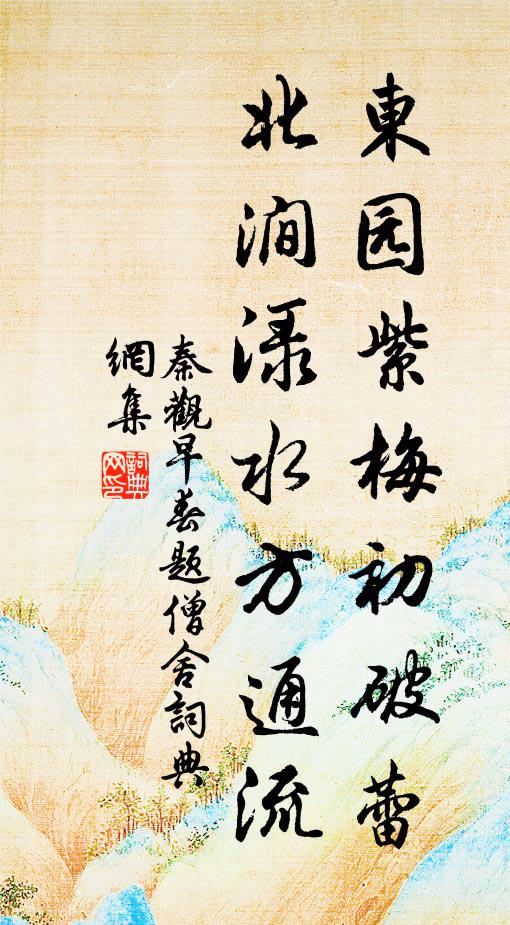 東园紫梅初破蕾
北澗渌水方通流
秦觀早春題僧舍詞典
網集
詞典
网印